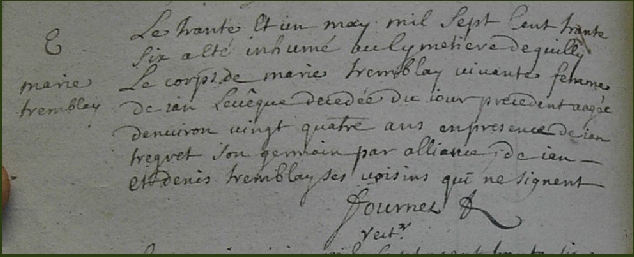 Le trante et un may mil sept cent trante
six a esté inhumé au cymetiere de quilly
marie tremblay
Le corps de marie tremblay vivante femme
de ian Levêque decedée du iour précedent aagée
denviron vingt quatre ans en presence de ian
tregret son germain par alliance, de ian
et denis tremblay ses voisins qui ne signent
fournet
rect.r